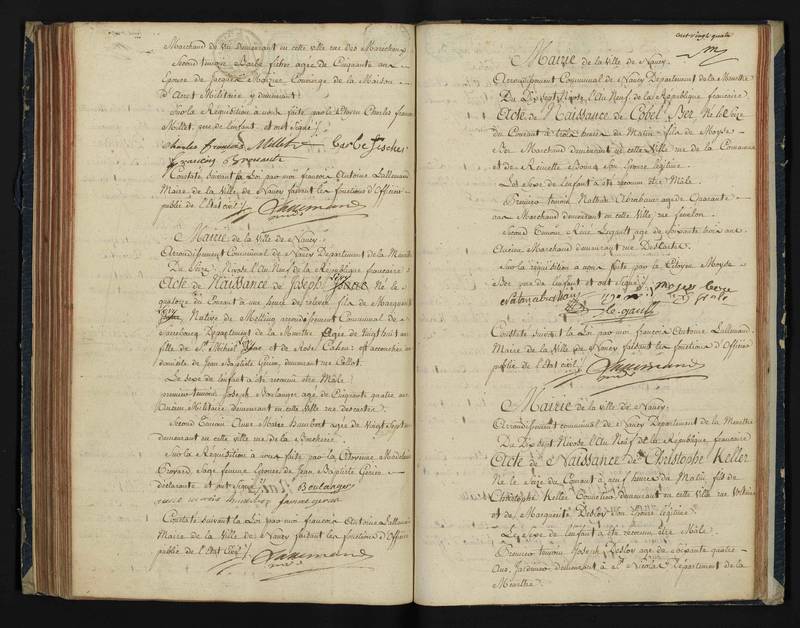 Marchand de vin demeurant en cette ville rue des Marechaux
Second temoin Barbe fischer agée de Cinquante ans
Epouse de Jacques Concierge de la Maison
d'Arret Militaire y demeurant
Sur la Réquisition à nous faite par le Citoyen Charles françois
Millet, pere de l'enfant et ont Signé ./.
Charles françois Millet Barbe fischer
Constaté suivant la Loi par moi françois Antoine Lallemand
Maire de la Ville de Nancy faisant les fonctions d'Officier
public de l'Etat Civil ./.
Lallemand
Mairie de la Ville de Nancy.
Arrondissement Communal de Nancy Département de la Meurthe
Du Seize Nivose l'An Neuf de la République francaise
Acte de Naissance de Joseph Levy Né le
quatorze du Courant à une heure de relevée fils de Marguerite
Levy Native de arrondissement Communal de
Sarrebourg Département de la Meurthe Agée de Vingt huit ans
fille de et de Rose Cahen: est accouchée au
domicile de Jean Baptiste demeurant rue Callot.
Le Sexe de l'enfant a été reconnu être Mâle
premier temoin Joseph Boulanger agé de Cinquante quatre ans
Ancien Militaire demeurant en cette ville rue descartes
Second Temoin Anne Marie Humbert agée de Vingt Sept ans
demeurant en cette ville rue de la Boucherie.
Sur la Réquisition a nous faite par la Citoyenne Magdelaine
Sage femme Epouse de Jean Baptiste
déclarante et ont Signé ./. Boulanger
Constaté suivant la Loi par moi francois Antoine Lallemand
Maire de la Ville de Nancy faisant les fonctions d'Officier
public de l'Etat Civil ./.
Lallemand
cent vingt quatre
Mairie de la Ville de Nancy.
Arrondissement Communal de Nancy Département de la Meurthe
Du Dix Sept Nivose l'An Neuf de la République francaise
Acte de Naissance de Cobel Ber, Né le Seize
du Courant à trois heures du Matin fils de Moyse
Ber Marchand demeurant en cette Ville rue de la Commune
et de son Epouse légitime.
Le Sexe de l'enfant a été reconnu être Mâle.
Premier temoin Nathan Abraham agé de Quarante
ans Marchand demeurant en cette Ville rue fenelon.
Second Temoin René Legault agé de Soixante trois ans
Ancien Marchand demeurant rue
Sur la réquisition a nous faite par le Citoyen Moyse
Ber pere de l'enfant et ont Signé ./.
Constaté suivant la Loi par moi françois Antoine Lallemand
Maire de la Ville de Nancy faisant les fonctions d'Officier
public de l'Etat Civil ./.
Lallemand
Mairie de la ville de Nancy.
Arrondissement communal de Nancy Département de la Meurthe
Du Dix Sept Nivose l'An Neuf de la République francaise
Acte de Naissance de Christophe Keller
Né le Seize du Courant à neuf heures du Matin, fils de
Christophe Keller demeurant en cette Ville rue Voltaire
et de Marguerite Desloy son Epouse légitime.
Le Sexe de l'enfant a été reconnu être Mâle.
Premier temoin Joseph Desloy agé de Soixante quatre
Ans, Jardinier demeurant à St Nicolas Département de la
Meurthe.